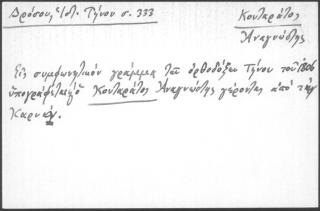 Δρόσου, Ἱστ. Τήνου σ. 333
Κονταρᾶτος
Ἀναγνώστης
Εἰς συμφωνητικὸν γράμμα τῶν ὀρθοδόξων Τήνου τοῦ 1806
ὑπογράφεται ὁ Κονταρᾶτος Ἀναγνώστης γέροντας ἀπὸ τὴν
Καρυάν.